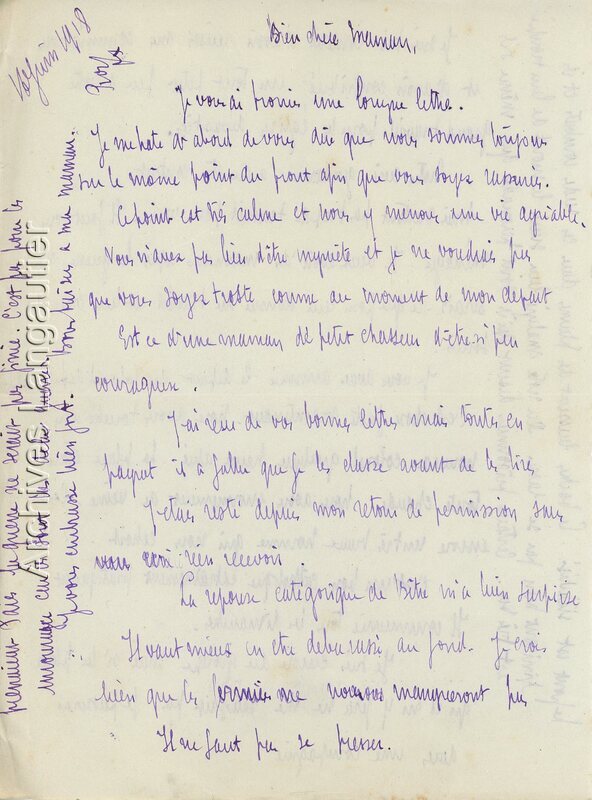 juin 1918
Bien chère Maman,
Je vous ai promis une longue lettre.
Je me hate d'abord de vous dire que nous sommes toujours
sur le même point du front afin que vous soyez rassurée.
Ce point est très calme et nous y menons une vie agréable.
Vous n'avez pas lieu d'être inquiète et je ne voudrais pas
que vous soyez triste comme au moment de mon depart
Est ce d'une maman de petit chasseur d'etre si peu
courageuse.
J'ai reçu de vos bonnes lettres mais toutes en
paquet il a fallu que je les classe avant de les lire
J'etais resté depuis mon retour de permission sans
rien recevoir
La reponse catégorique de m'a bien surprise
Il vaut mieux en etre debarrassé au fond. Je crois
bien que les ne nous manqueront pas
Il ne faut pas se presser.
la guerre ne serait pas finie. C'est pas pour les
Je vous embrasse bien fort. bons baisers a ma maman.
Archives Langautier